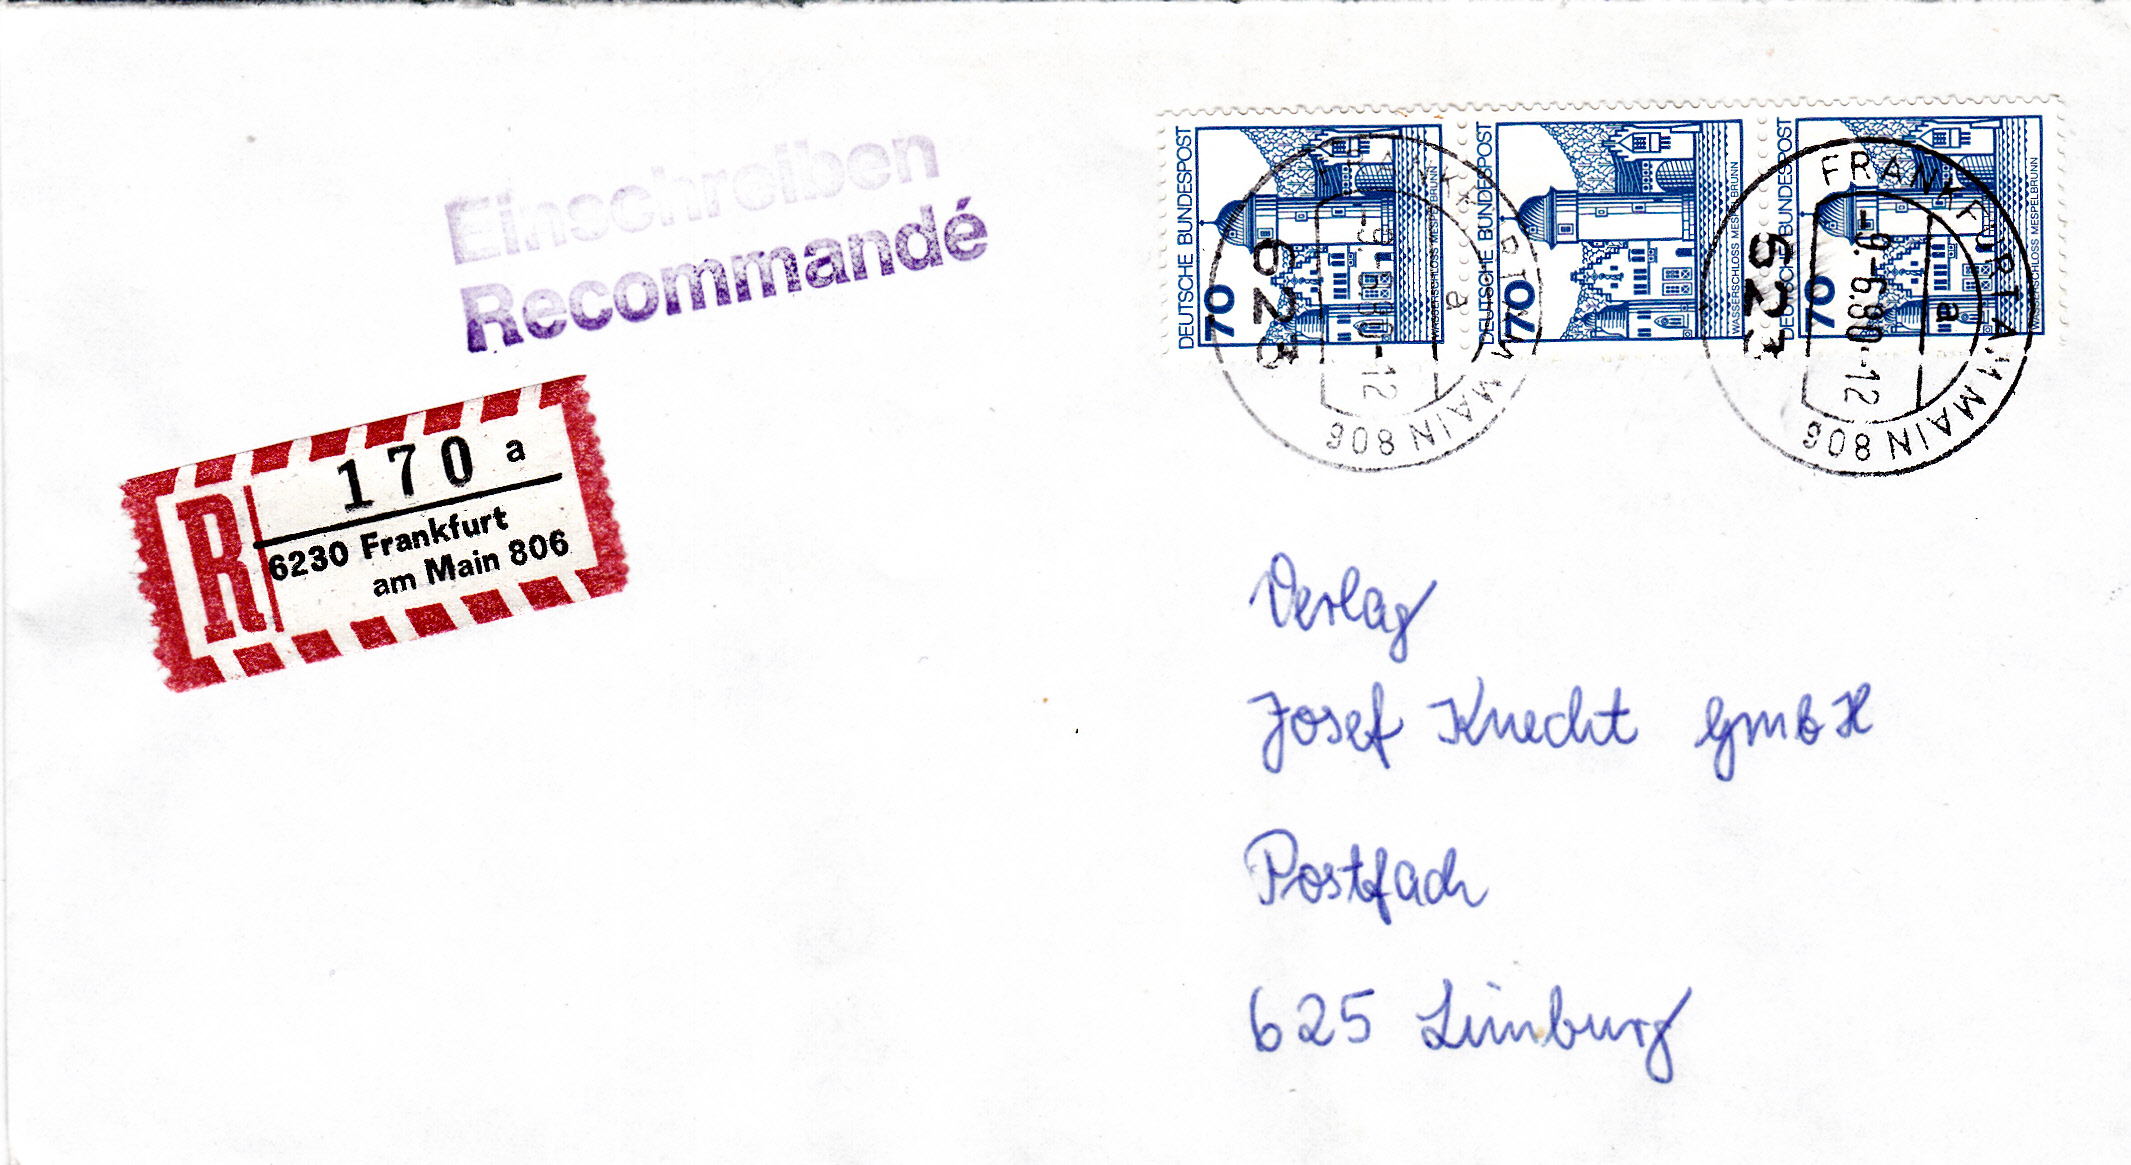 Einschreiben
Recommandé
DEUTSCHE BUNDESPOST
70
WASSERSCHLOSS MESPELBRUNN
DEUTSCHE BUNDESPOST
70
WASSERSCHLOSS MESPELBRUNN
DEUTSCHE BUNDESPOST
70
WASSERSCHLOSS MESPELBRUNN
FRANKFURT AM MAIN 806
623
-9.-6.80-12
a
FRANKFURT AM MAIN 806
623
-9.-6.80-12
a
R
170 a
6230 Frankfurt
am Main 806
Verlag
Josef Knecht GmbH
Postfach
625 Limburg